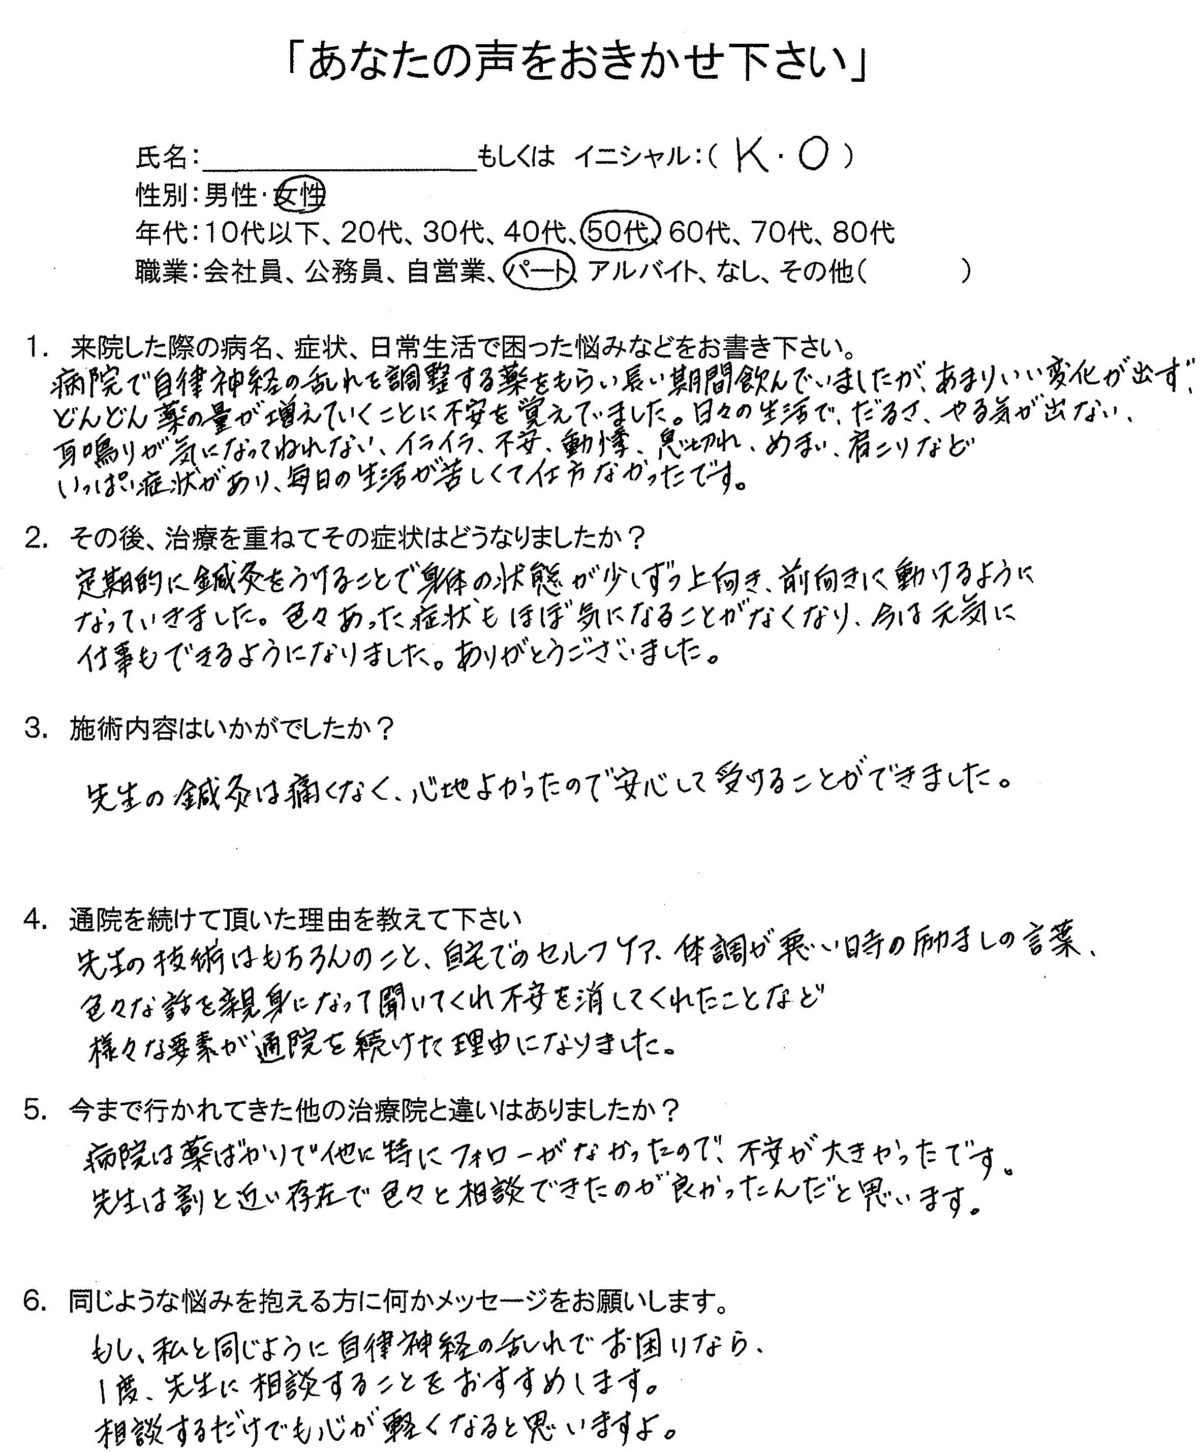 「あなたの声をおきかせ下さい」
氏名：＿＿＿＿＿＿＿＿＿＿もしくは イニシャル：（ K・O ）
性別：男性・女性
年代：10代以下、20代、30代、40代、50代、60代、70代、80代
職業：会社員、公務員、自営業、パート、アルバイト、なし、その他（　　　　）
1. 来院した際の病名、症状、日常生活で困った悩みなどをお書き下さい。
病院で自律神経の乱れを調整する薬をもらい長い期間飲んでいましたが、あまりいい変化が出ず、
どんどん薬の量が増えていくことに不安を覚えていました。日々の生活で、だるさ、やる気が出ない、
耳鳴りが気になってねれない、イライラ、不安、動悸、息切れ、めまい、肩こりなど
いっぱい症状があり、毎日の生活が苦しくて仕方なかったです。
2. その後、治療を重ねてその症状はどうなりましたか？
定期的に鍼灸をうけることで身体の状態が少しずつ上向き、前向きに動けるように
なっていきました。色々あった症状もほぼ気になることがなくなり、今は元気に
仕事もできるようになりました。ありがとうございました。
3. 施術内容はいかがでしたか？
先生の鍼灸は痛くなく、心地よかったので安心して受けることができました。
4. 通院を続けて頂いた理由を教えて下さい
先生の技術はもちろんのこと、自宅でのセルフケア、体調が悪い時の励ましの言葉、
色々な話を親身になって聞いてくれ不安を消してくれたことなど
様々な要素が通院を続けた理由になりました。
5. 今まで行かれてきた他の治療院と違いはありましたか？
病院は薬ばかりで他に特にフォローがなかったので、不安が大きかったです。
先生は割と近い存在で色々と相談できたのが良かったんだと思います。
6. 同じような悩みを抱える方に何かメッセージをお願いします。
もし、私と同じように自律神経の乱れでお困りなら、
1度、先生に相談することをおすすめします。
相談するだけでも心が軽くなると思いますよ。